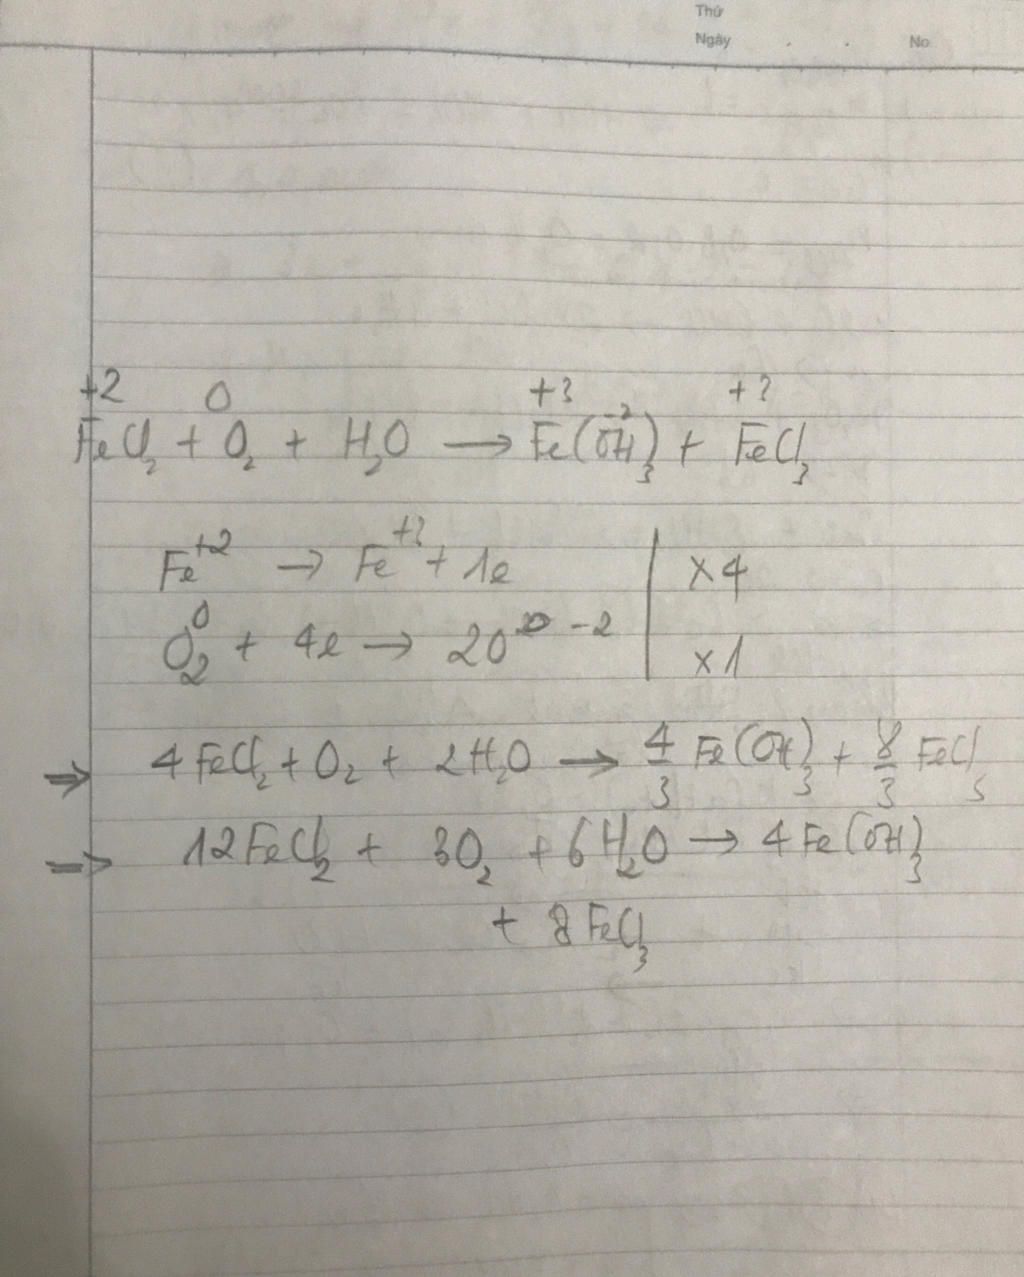 Thứ
Ngày . . No
+2 0 +3 -2 +3
FeCl₂ + O₂ + H₂O → Fe(OH)₃ + FeCl₃
Fe⁺² → Fe⁺³ + 1e | ×4
O₂⁰ + 4e → 2O⁻² | ×1
⇒ 4FeCl₂ + O₂ + 2H₂O → 4/3 Fe(OH)₃ + 8/3 FeCl₃
⇒ 12FeCl₂ + 3O₂ + 6H₂O → 4Fe(OH)₃
+ 8FeCl₃